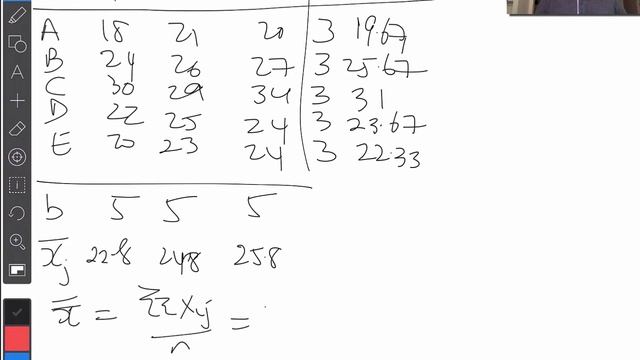 A 18 21 20 3 19.67
B 24 26 27 3 25.67
C 30 29 34 3 31
D 22 25 24 3 23.67
E 20 23 24 3 22.33
b 5 5 5
x̄j 22.8 24.8 25.8
x̿ = ΣΣxij / n =